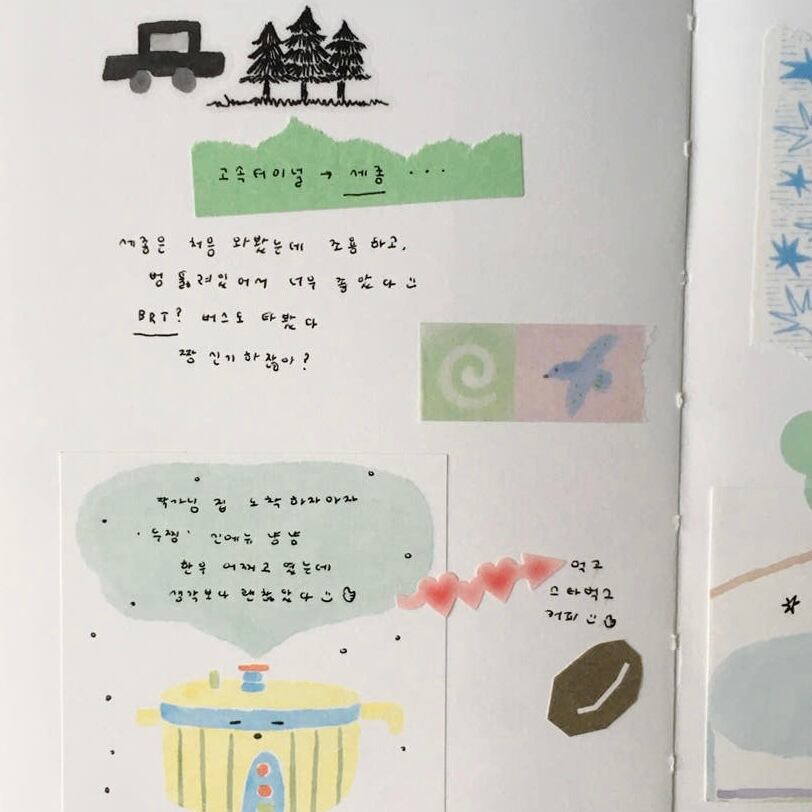 고속터미널 → 세종 ...
세종은 처음 와봤는데 조용하고,
뻥 뚫려있어서 너무 좋았다
BRT? 버스도 타봤다
짱 신기하잖아?
작가님 집 도착하자마자
신메뉴 냠냠
한우 어쩌고 였는데
생각보다 괜찮았다
먹고
커피